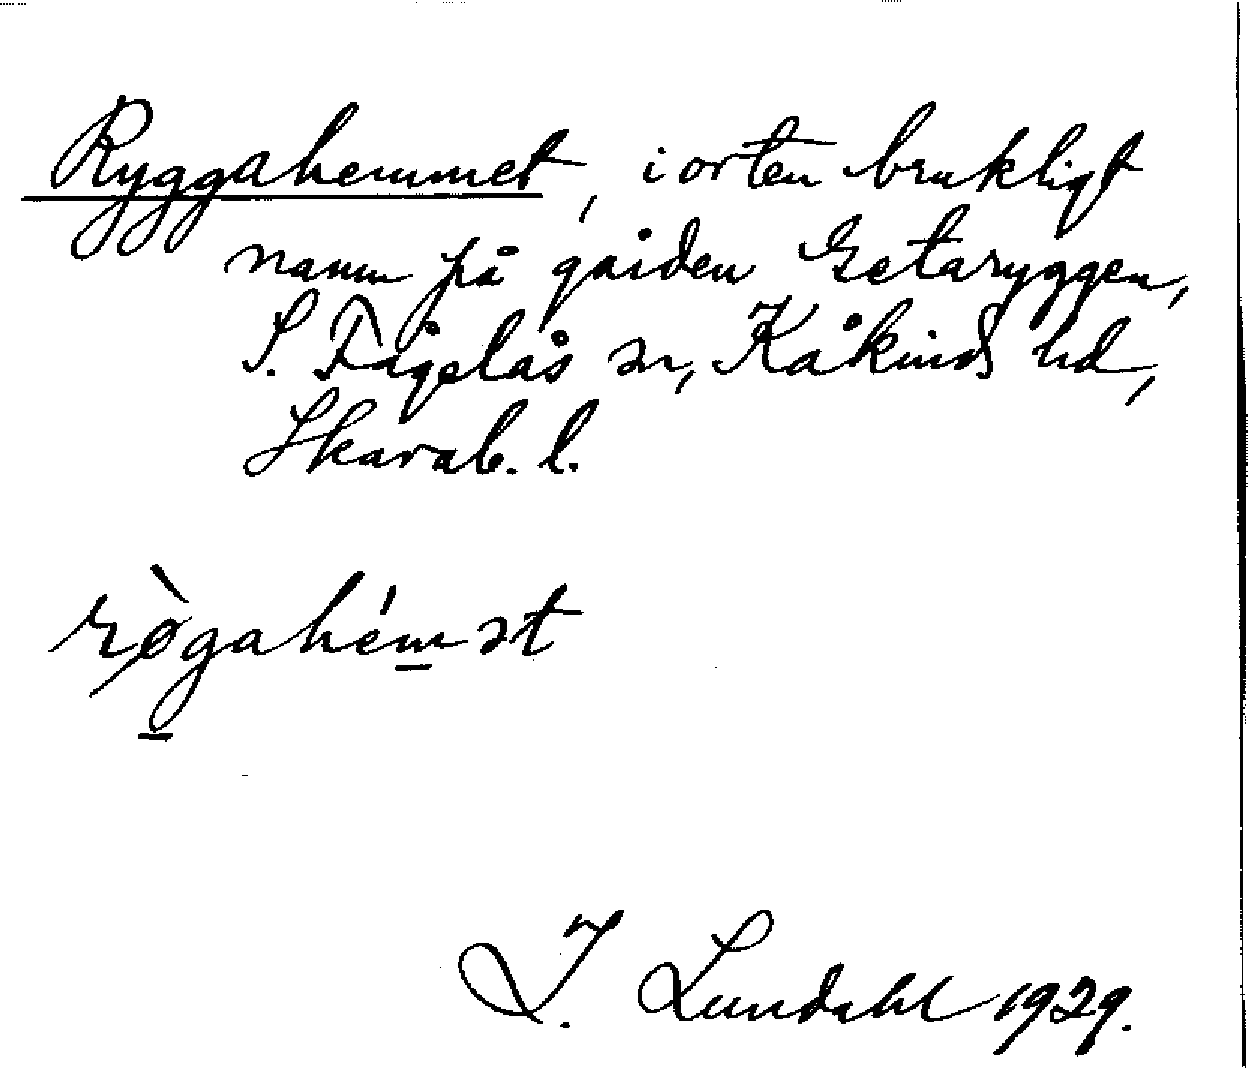 Ryggahemmet, i orten brukligt
namn på gården Getaryggen,
S. Fågelås sn, Kåkinds hd,
Skarab. l.
rø̀gahémət
I. Lundahl 1929.